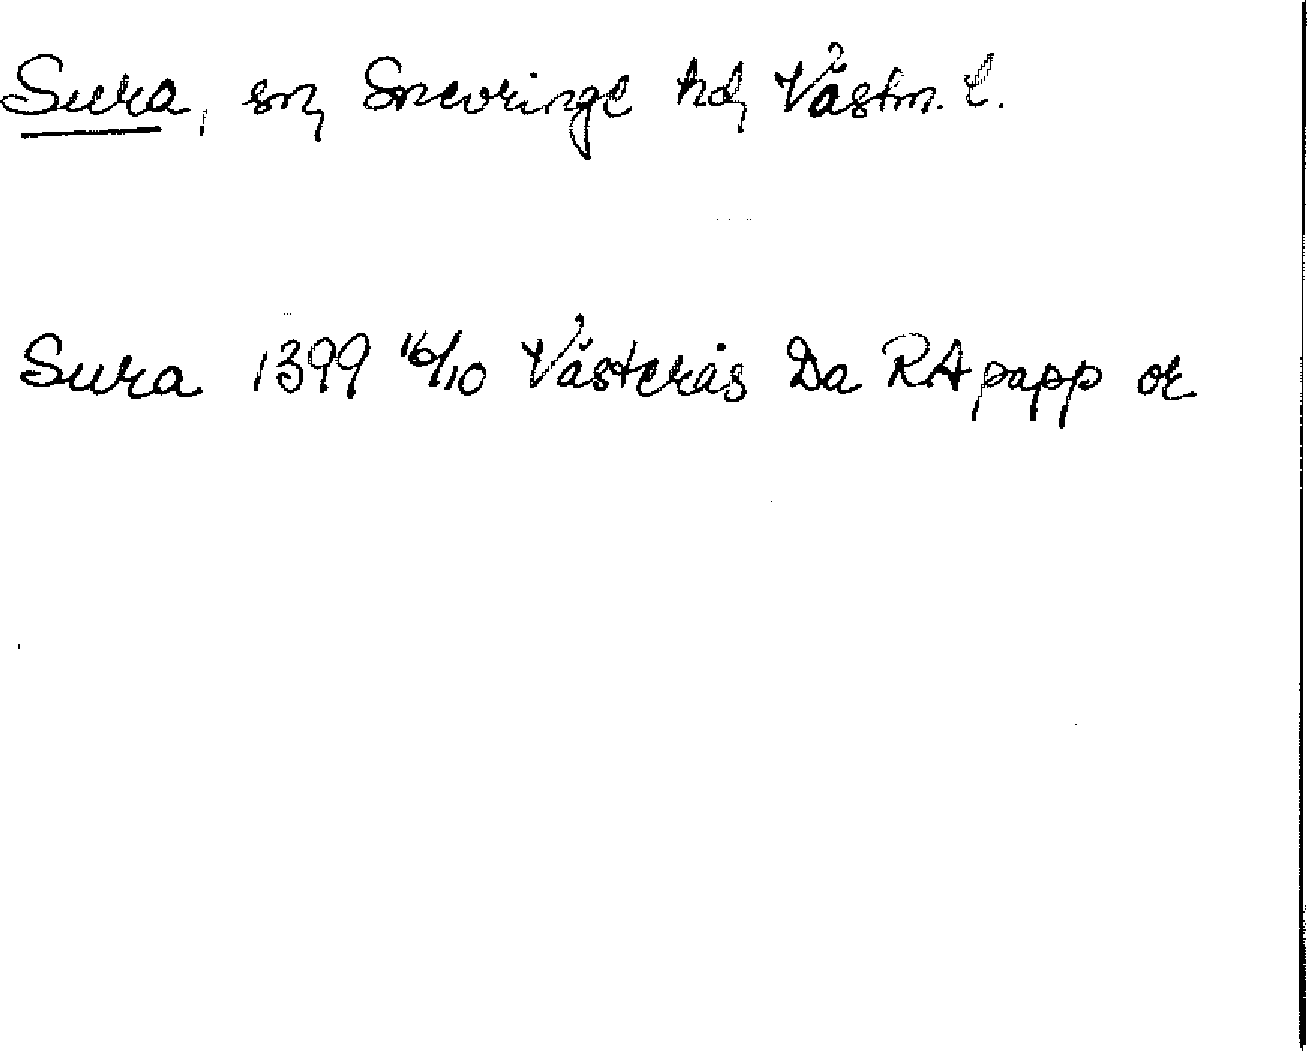 Sura, sn, Snevringe hd, Västm. l.
Sura 1399 16/10 Västerås Da RA papp or